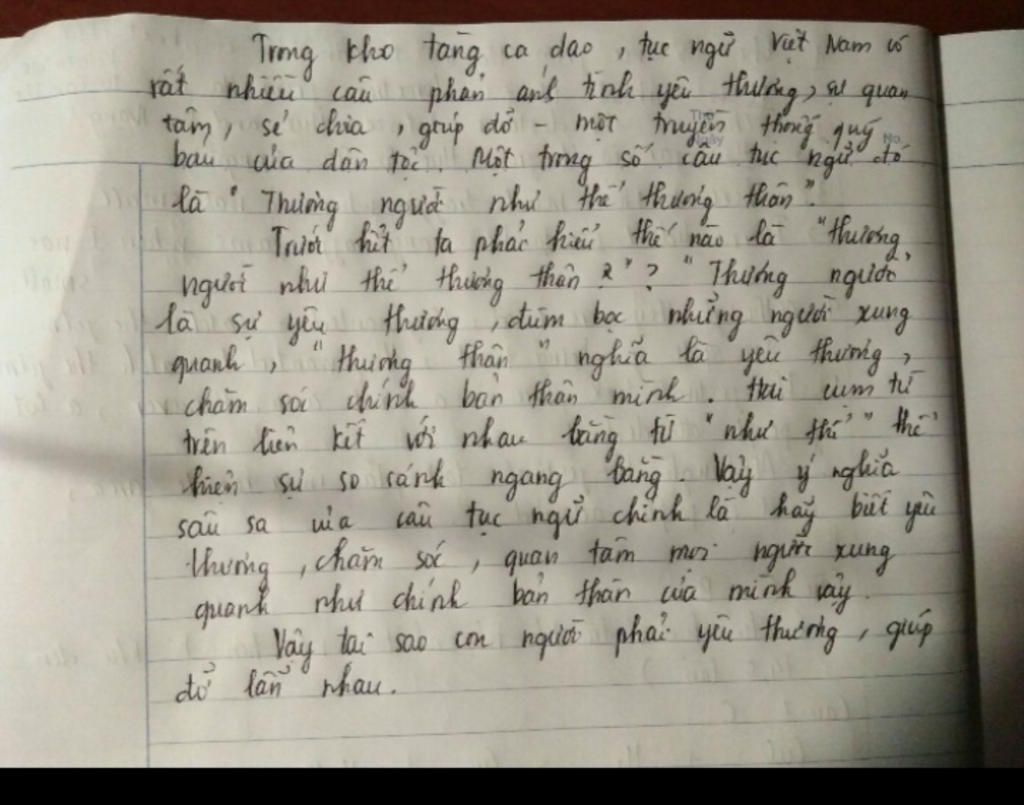 Trong kho tàng ca dao, tục ngữ Việt Nam có
rất nhiều câu phản ánh tình yêu thương, sự quan
tâm, sẻ chia, giúp đỡ - một truyền thống quý
báu của dân tộc. Một trong số câu tục ngữ đó
là "Thương người như thể thương thân".
Trước hết ta phải hiểu thế nào là "thương
người như thể thương thân ?" ? "Thương người"
là sự yêu thương, đùm bọc những người xung
quanh, "thương thân" nghĩa là yêu thương,
chăm sóc chính bản thân mình. Hai cụm từ
trên liên kết với nhau bằng từ "như thể" thể
hiện sự so sánh ngang bằng. Vậy ý nghĩa
sâu sa của câu tục ngữ chính là hãy biết yêu
thương, chăm sóc, quan tâm mọi người xung
quanh như chính bản thân của mình vậy.
Vậy tại sao con người phải yêu thương, giúp
đỡ lẫn nhau.